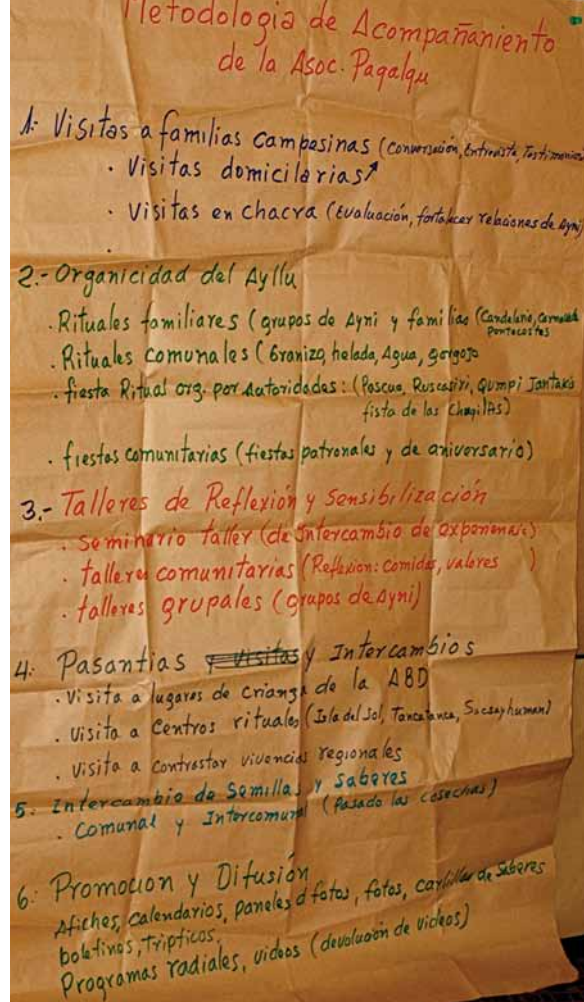 Metodologia de Acompañaniento
de la Asoc. Pagalqu
1: Visitas a familias campesinas (Conversación, Entrevista, Testimonios
· Visitas domicilarias
· Visitas en chacra (Evaluación, fortalecer relaciones de Ayni)
·
2.- Organicidad del Ayllu
. Rituales familiares (grupos de Ayni y familias (Candelaria, Carnaval
Pentecostes
. Rituales comunales (Granizo, helada, Agua, gorgojo
. fiesta Ritual org. por Autoridades: (Pascua, Ruscasiri, Qumpi Jantakis
fista de las
. fiestas comunitarias (fiestas patronales y de aniversario)
3.- Talleres de Reflexión y Sensibilización
. Seminario taller (de Intercambio de
. talleres comunitarias (Reflexion: comidas, valores )
. talleres grupales (grupos de Ayni)
4: Pasantias y Visitas y Intercambios
. Visita a lugares de Crianza de la ABD
. Visita a Centros rituales (Isla del Sol, Sacsayhuman)
. Visita a contrastar vivencias regionales
5. Intercambio de Semillas y Saberes
. Comunal y Intercomunal (Pasado las cosechas)
6: Promocion y Difusión
Afiches, Calendarios, paneles d fotos, fotos, cartillas de Saberes
boletinos, tripticos.
Programas radiales, videos (devolución de videos)